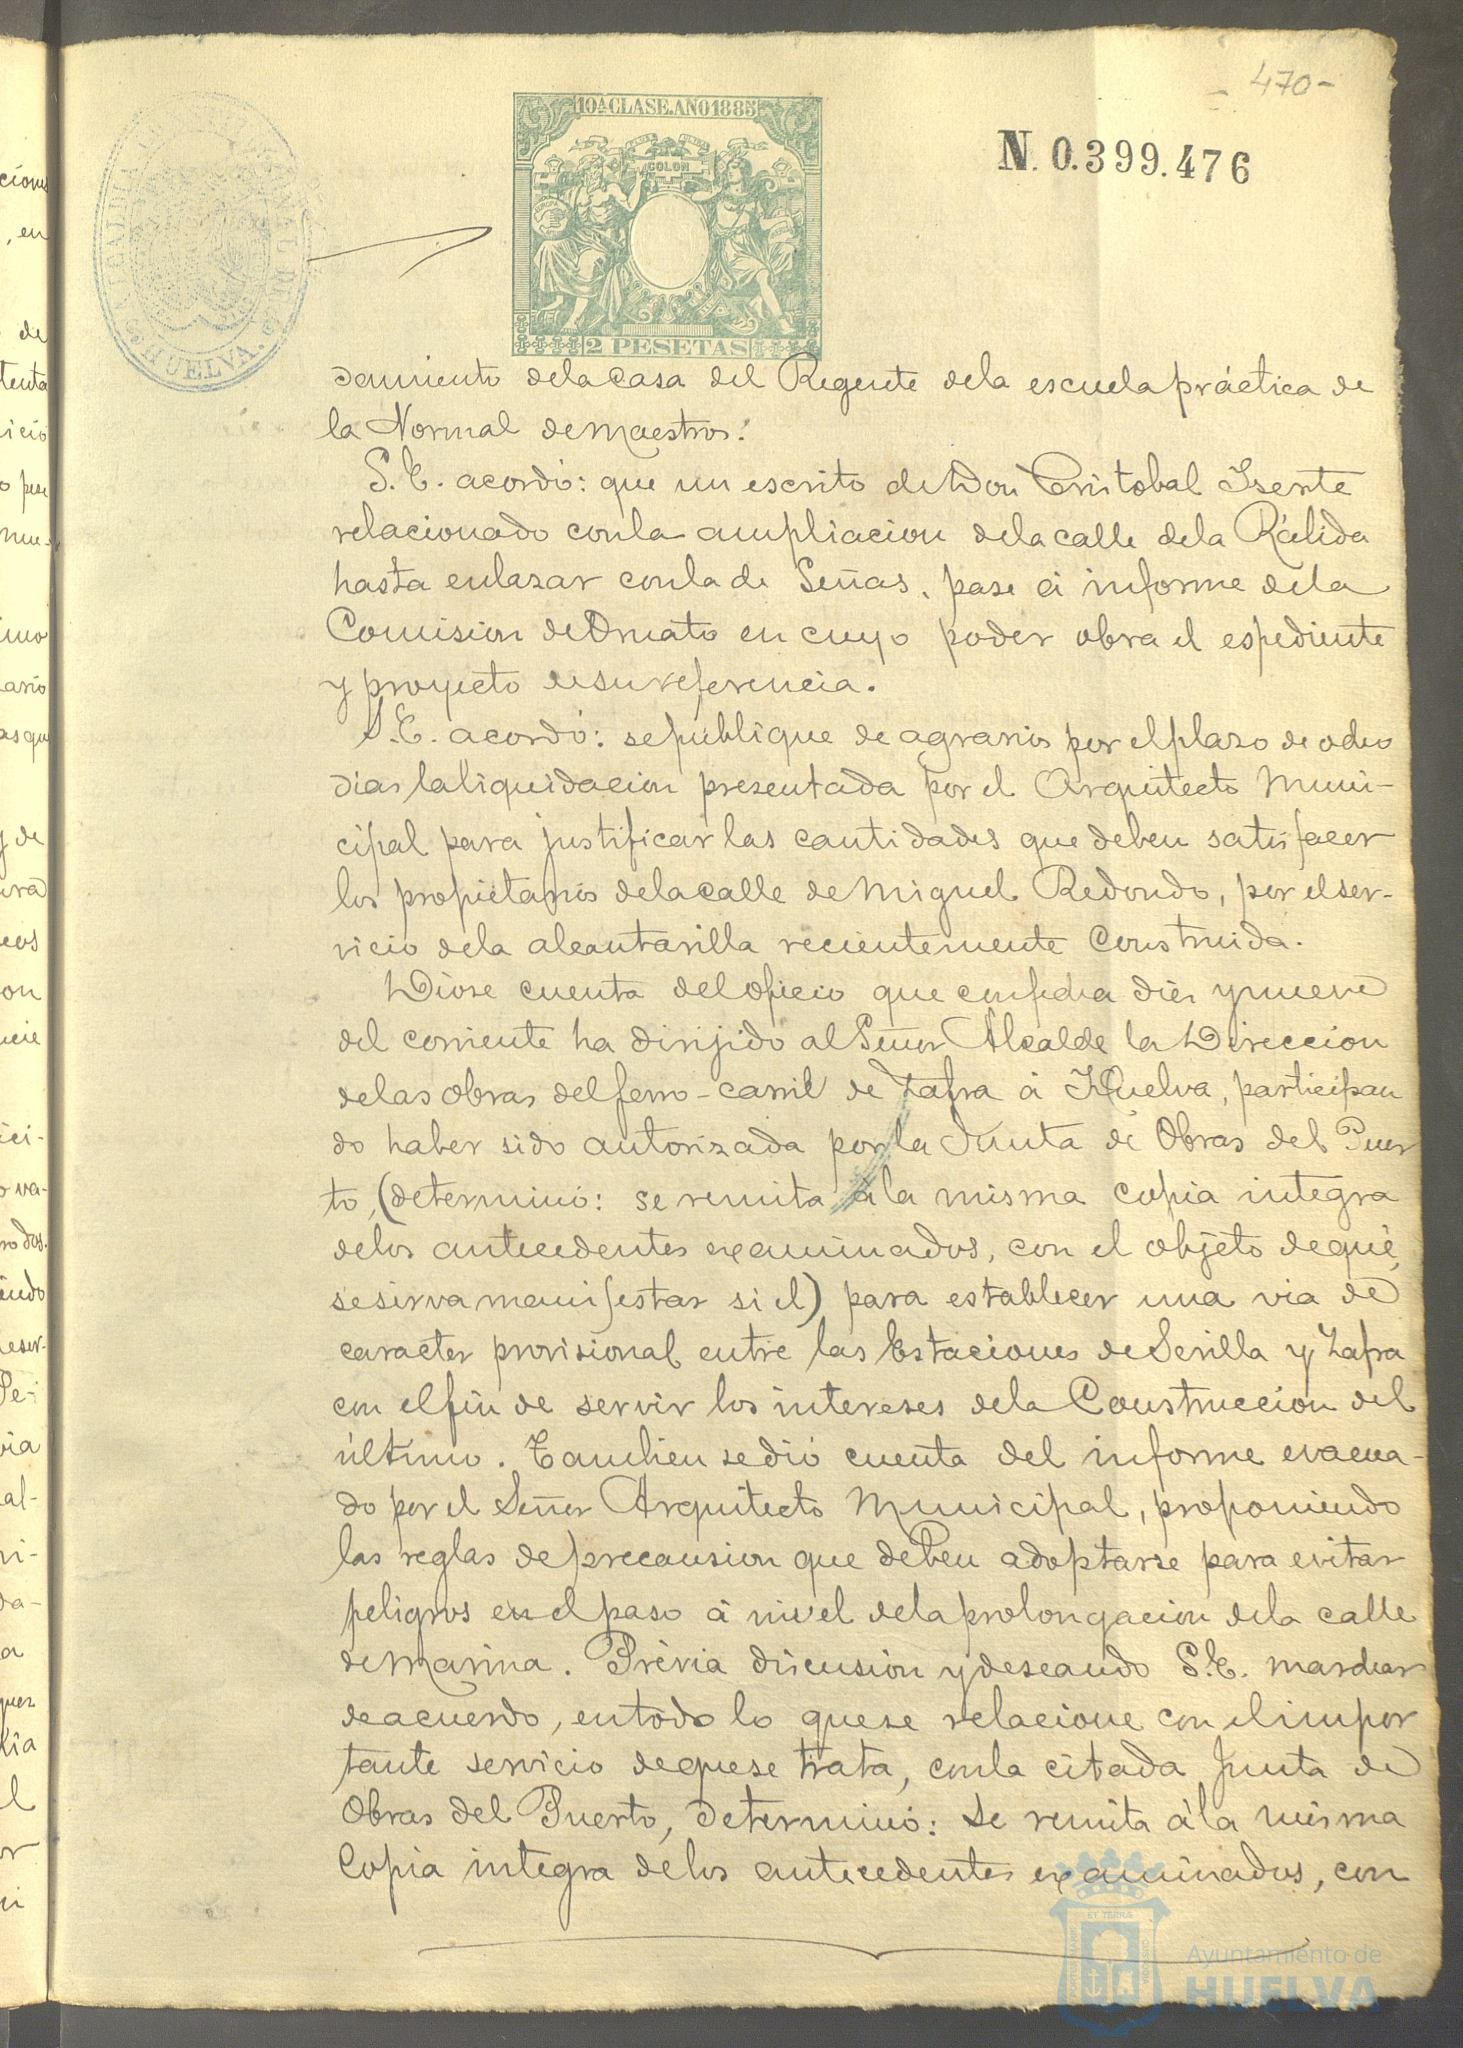 470-
10ª CLASE. AÑO 1885
COLON
EUROPA
N. 0.399.476
HUELVA.
2 PESETAS
damiento dela casa del Regente dela escuela práctica de
la Normal de Maestros.
S.E. acordó: que un escrito de Don Cristobal Isente
relacionado con la ampliacion dela calle dela Rálida
hasta enlazar con la de Señas, pase á informe dela
Comision de Ornato en cuyo poder obra el espediente
y proyecto de su referencia.
S.E. acordó: se publique de agravios por el plazo de ocho
dias la liquidacion presentada por el Arquitecto Muni-
cipal para justificar las cantidades que deben satisfacer
los propietarios dela calle de Miguel Redondo, por el ser-
vicio dela alcantarilla recientemente construida.
Diose cuenta del oficio que con fecha diez y nueve
del corriente ha dirijido al Señor Alcalde la Direccion
delas obras del ferro-carril de Zafra á Huelva, participan
do haber sido autorizada por la Junta de Obras del Puer
to, (determinó: se remita á la misma copia integra
delos antecedentes examinados, con el objeto de que
se sirva manifestar si el) para establecer una via de
caracter provisional entre las Estaciones de Sevilla y Zafra
con el fin de servir los intereses dela Construccion del
último. Tambien se dió cuenta del informe evacua-
do por el Señor Arquitecto Municipal, proponiendo
las reglas de precausion que deben adoptarse para evitar
peligros en el paso á nivel dela prolongacion dela calle
de Marina. Prévia discusion y deseando S.E. marchar
de acuerdo, en todo lo que se relacione con el impor
tante servicio de que se trata, con la citada Junta de
Obras del Puerto, determinó: Se remita á la misma
Copia integra delos antecedentes examinados, con
Ayuntamiento de
HUELVA